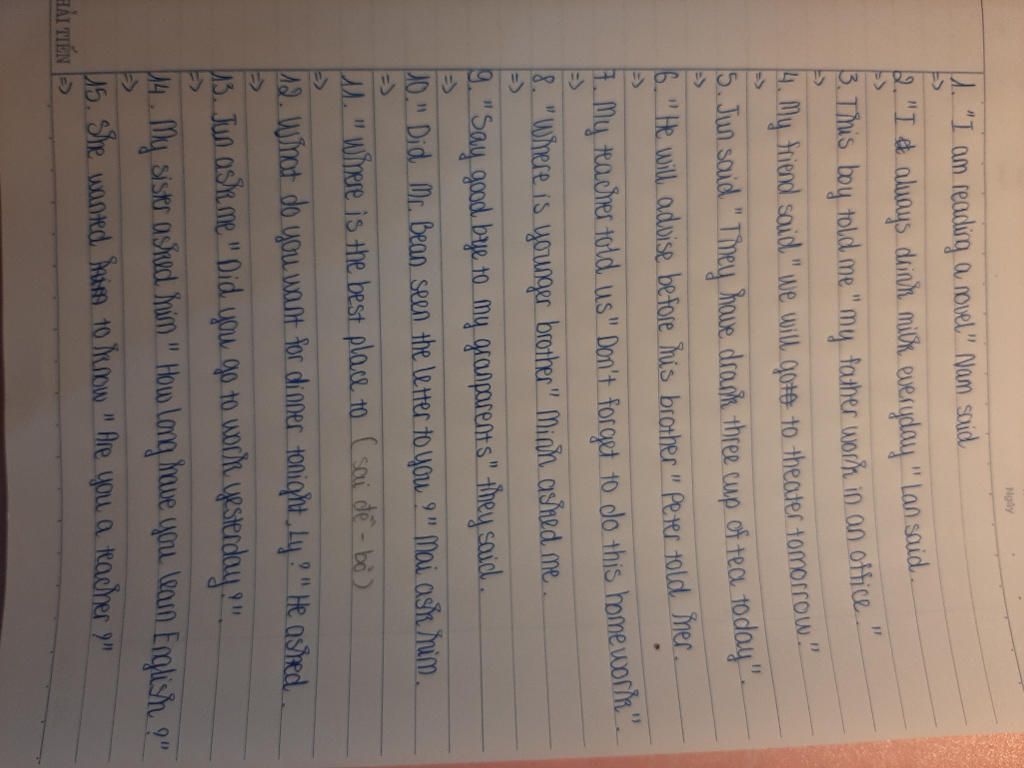 Ngày
1. "I am reading a novel." Nam said
=>
2. "I always drink milk everyday" Lan said.
=>
3. This boy told me "my father work in an office."
=>
4. My friend said "we will go to theater tomorrow."
=>
5. Jun said "They have drank three cup of tea today".
=>
6. "He will advise before his brother" Peter told her.
=>
7. My teacher told us "Don't forget to do this homework".
=>
8. "Where is younger brother" Minh asked me.
=>
9. "Say good bye to my granparents" they said.
=>
10. "Did Mr. Bean seen the letter to you?" Mai ask him.
=>
11. "Where is the best place to (sai đề - bỏ)
=>
12. What do you want for dinner tonight, Ly?" He asked.
=>
13. Jun ask me "Did you go to work yesterday?".
=>
14. My sister asked him "How long have you lean English?"
=>
15. She wanted to know "Are you a teacher?"
=>
HẢI TIẾN